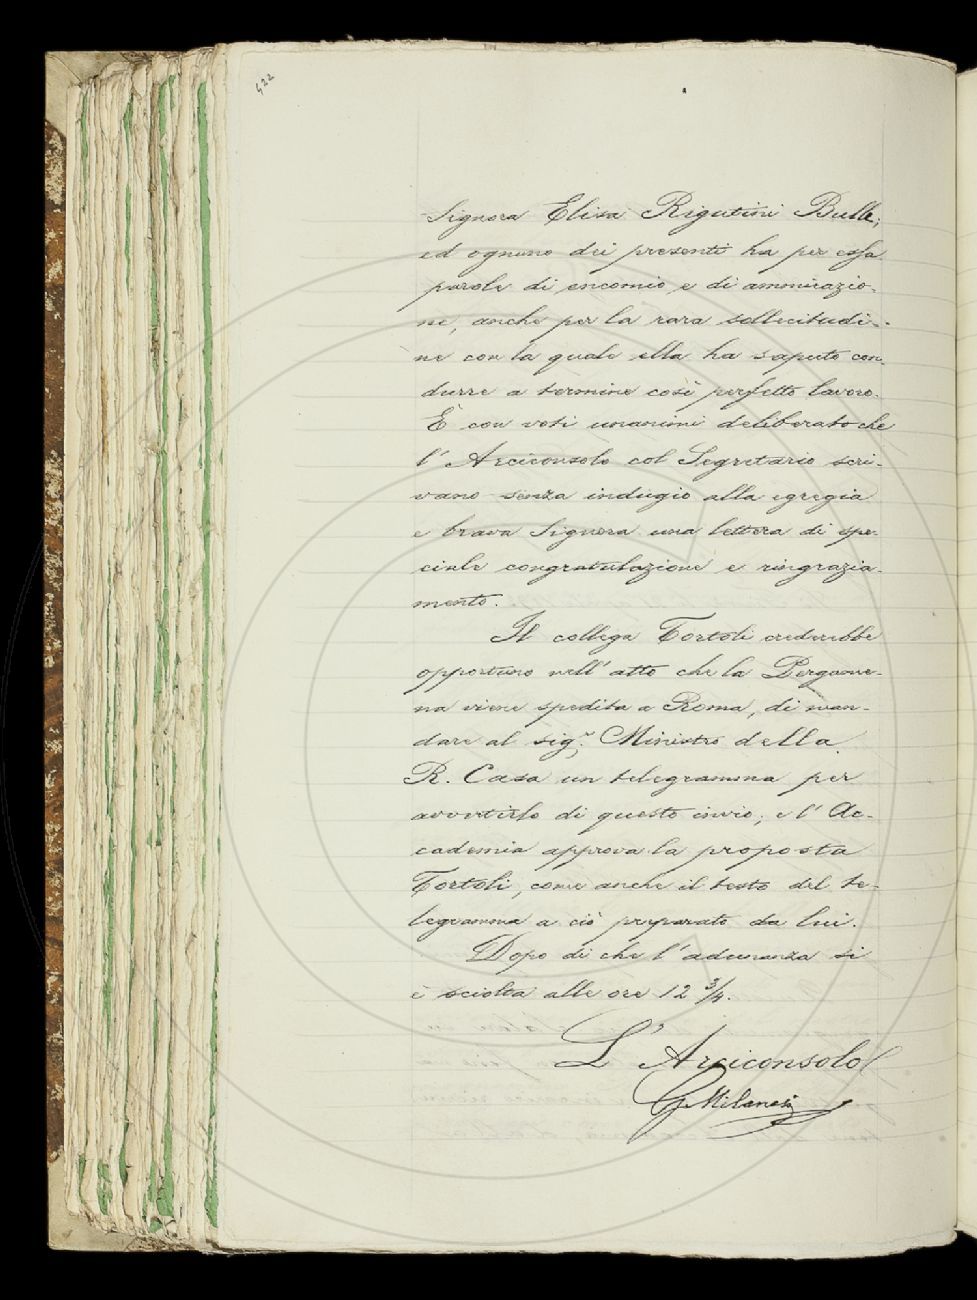 422
Signora Elisa Rigutini Bulle;
ed ognuno dei presenti ha per essa
parole di encomio e di ammirazio-
ne, anche per la rara sollecitudi-
ne con la quale ella ha saputo con-
durre a termine così perfetto lavoro.
È con voti unanimi deliberato che
l'Arciconsolo col Segretario scri-
vano senza indugio alla egregia
e brava Signora una lettera di spe-
ciale congratulazione e ringrazia-
mento.
Il collega Tortoli crederebbe
opportuno nell'atto che la Pergame-
na viene spedita a Roma, di man-
dare al sig.r Ministro della
R. Casa un telegramma per
avvertirlo di questo invio; e l'Ac-
cademia approva la proposta
Tortoli, come anche il testo del te-
legramma a ciò preparato da lui.
Dopo di che l'adunanza si
è sciolta alle ore 12 3/4.
L'Arciconsolo
G Milanesi